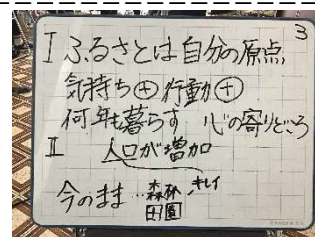 3
I ふるさとは自分の原点
気持ち⊕ 行動⊕
何年も暮らす 心の寄りどころ
II 人口が増加
今のまま…森林 キレイ
田園